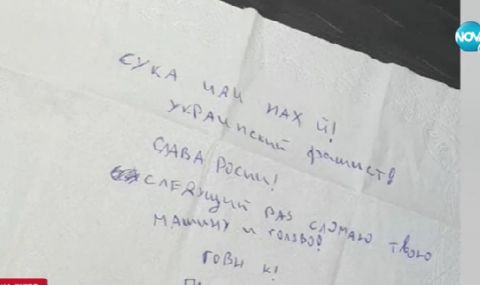 NOVA
СУКА ИДИ НАХ Й!
УКРАИНСКИЙ фашиств
СЛАВА РОСИИ!
СЛЕДУЩИЙ РАЗ СЛОМАЮ ТВОЮ
МАШИНУ И ГОЛОВО!
ГОВН К!